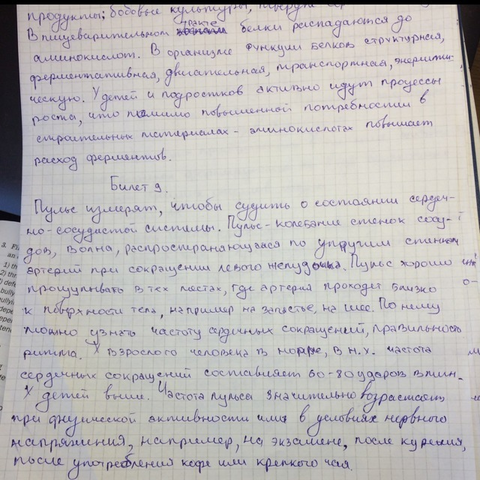 продукты, бобовые культуры,
тракте
В пищеварительном белки распадаются до
аминокислот. В организме функции белков структурная,
ферментативная, двигательная, транспортная, энергети-
ческую. У детей и подростков активно идут процессы
роста, что помимо повышенной потребности в
строительных материалах - аминокислотах повышает
расход ферментов.
Билет 9.
Пульс измерят, чтобы судить о состоянии сердеч-
но-сосудистой системы. Пульс - колебание стенок сосу-
дов, волна, распространяющаяся по упругим стенкам
артерий при сокращении левого желудочка. Пульс хорошо
прощупывать в тех местах, где артерия проходит близко
к поверхности тела, например на запястье, на шее. По нему
можно узнать частоту сердечных сокращений, правильность
ритма. У взрослого человека в норме, в н.у. частота
сердечных сокращений составляет 60-80 ударов в мин.
У детей выше. Частота пульса значительно возрастает
при физической активности или в условиях нервного
напряжения, например, на экзамене, после курения,
после употребления кофе или крепкого чая.